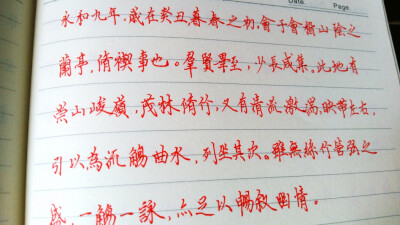 Date Page
永和九年，歲在癸丑，暮春之初，會于會稽山陰之
蘭亭，脩禊事也。羣賢畢至，少長咸集。此地有
崇山峻嶺，茂林脩竹，又有清流激湍，映帶左右，
引以為流觴曲水，列坐其次。雖無絲竹管弦之
盛，一觴一詠，亦足以暢叙幽情。